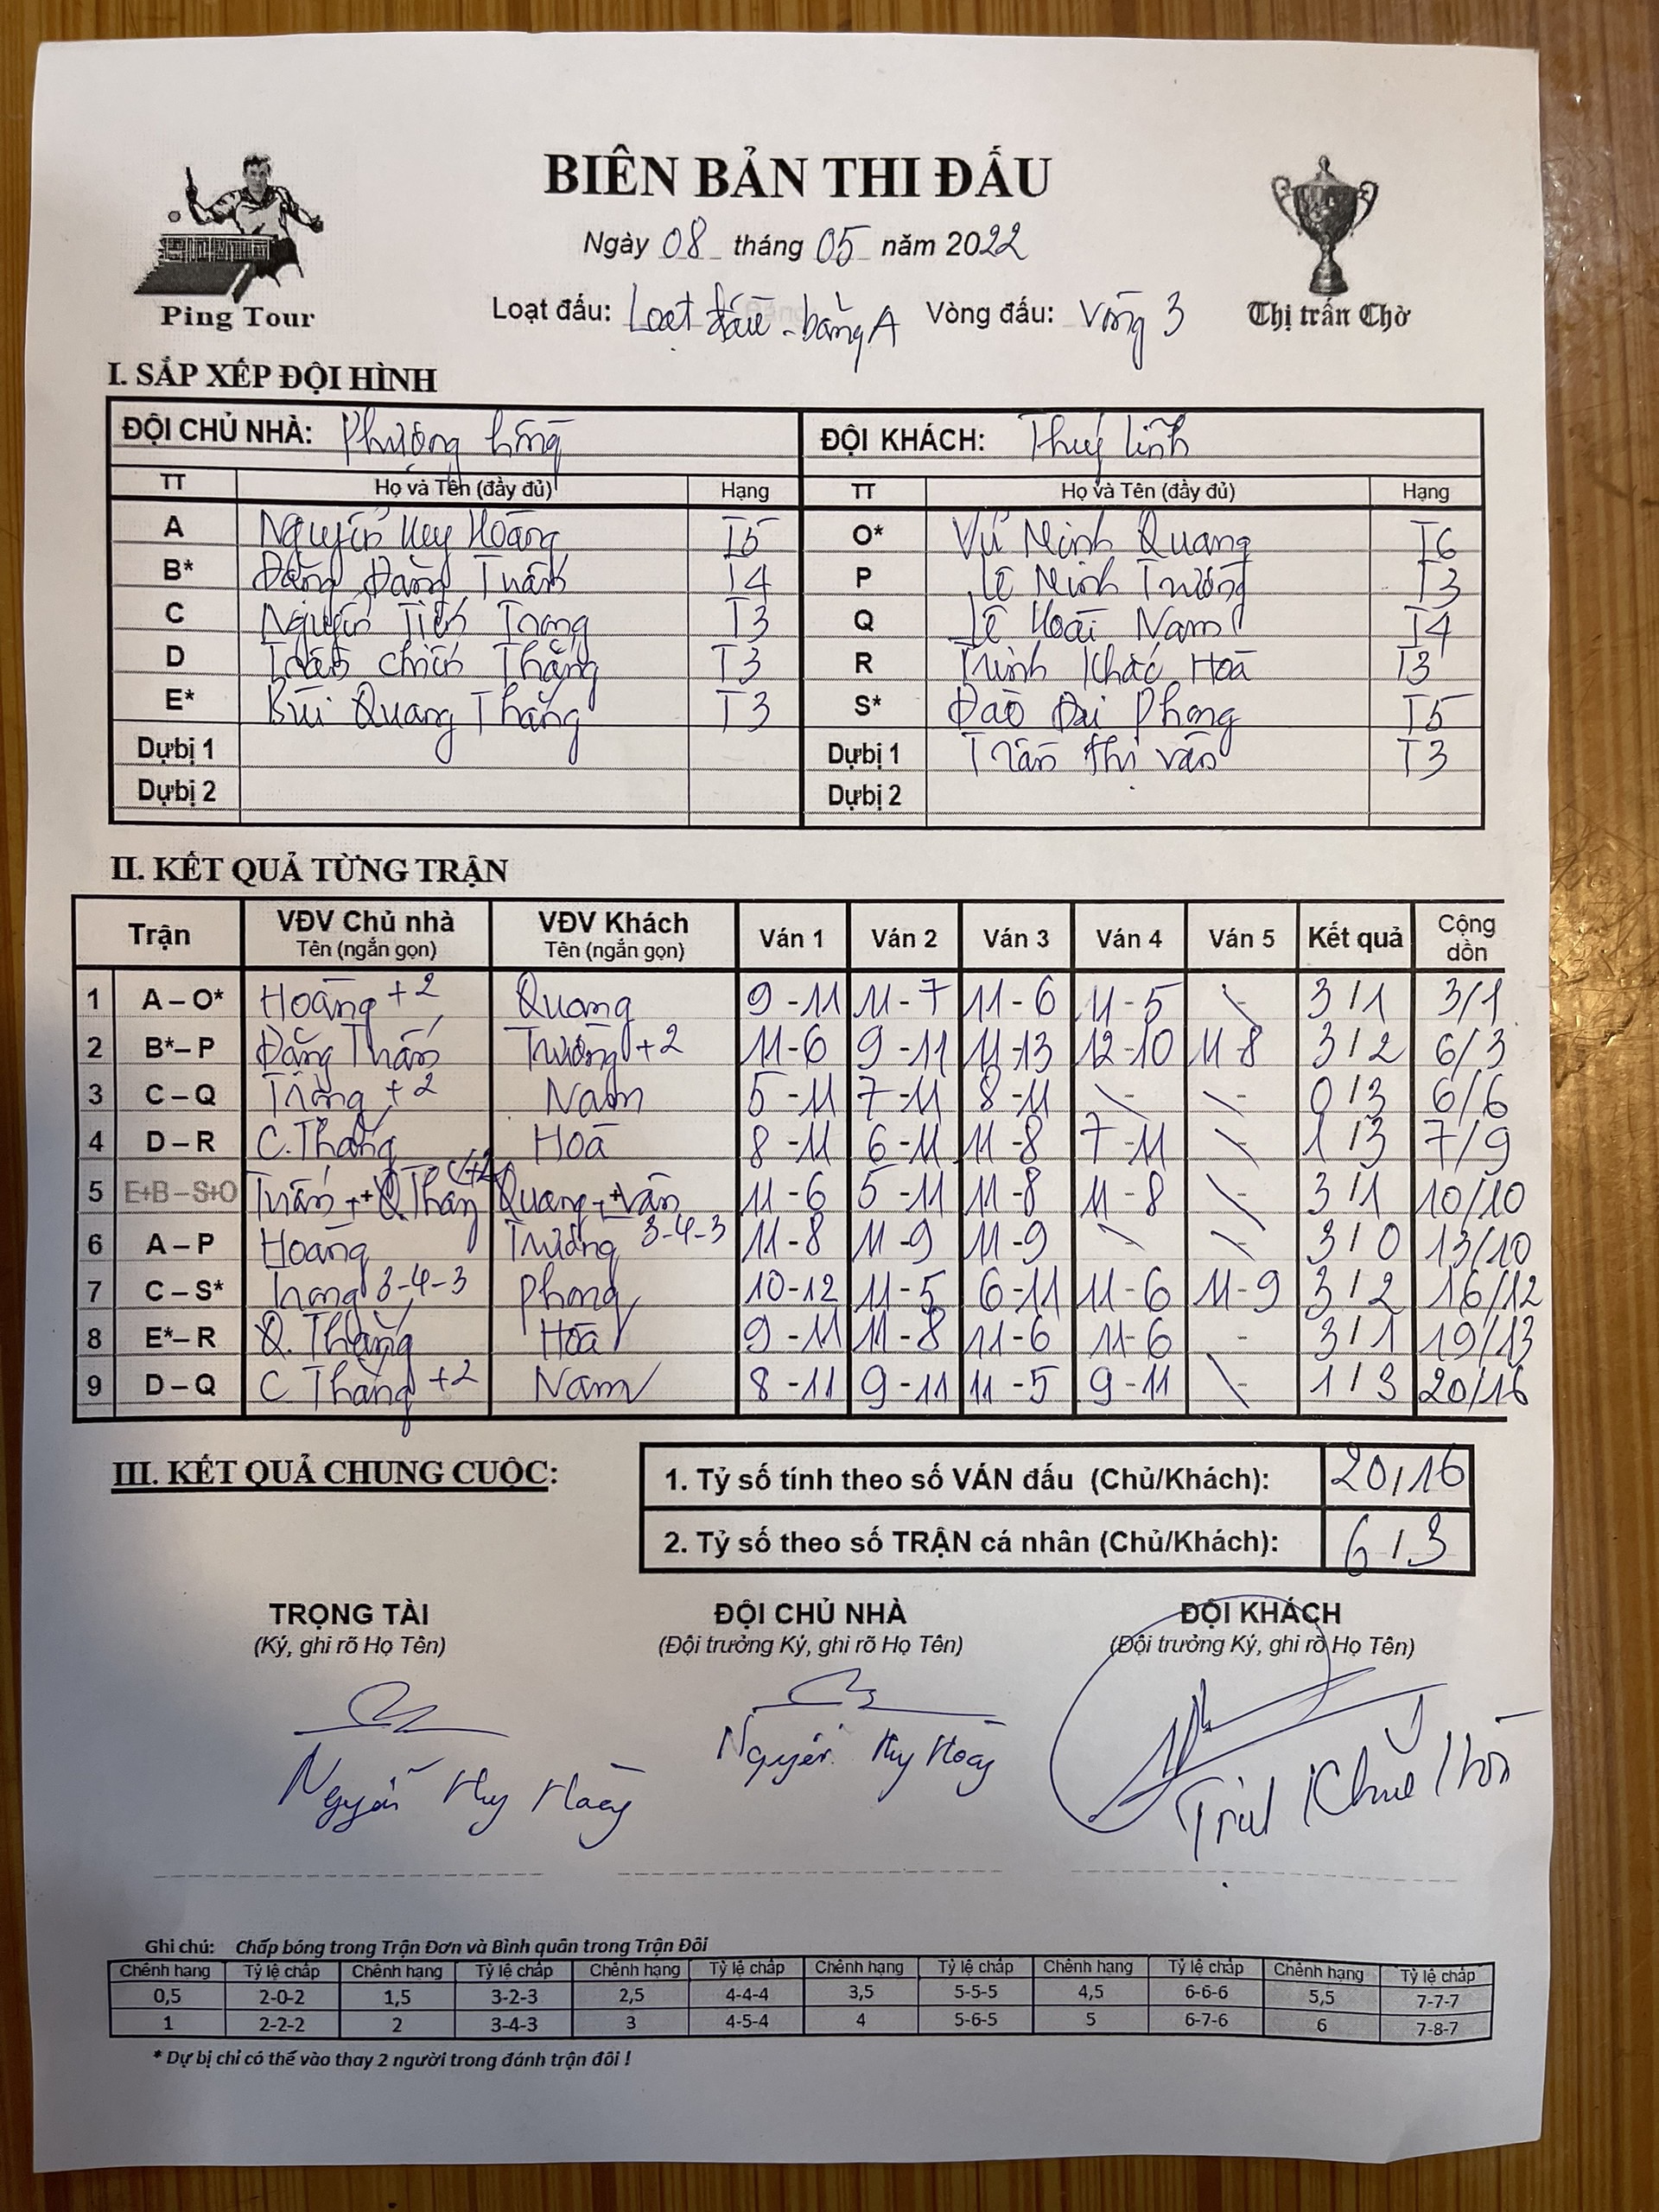 BIÊN BẢN THI ĐẤU
Ngày 08 tháng 05 năm 2022
Ping Tour
Loạt đấu: Loạt đấu - bảng A Vòng đấu: Vòng 3
Thị trấn Chờ
I. SẮP XẾP ĐỘI HÌNH
ĐỘI CHỦ NHÀ: Phượng hồng ĐỘI KHÁCH: Thuỷ linh
TT Họ và Tên (đầy đủ) Hạng TT Họ và Tên (đầy đủ) Hạng
A Nguyễn Huy Hoàng T5 O* Vũ Minh Quang T6
B* Đặng Đăng Tuấn T4 P Lê Minh Trường T3
C Nguyễn Tiến Trọng T3 Q Lê Hoài Nam T4
D Trần Chiến Thắng T3 R Trịnh Khắc Hoà T3
E* Bùi Quang Thắng T3 S* Đào Đại Phong T5
Dự bị 1 Dự bị 1 Trần Thị Vân T3
Dự bị 2 Dự bị 2
II. KẾT QUẢ TỪNG TRẬN
Trận VĐV Chủ nhà VĐV Khách Ván 1 Ván 2 Ván 3 Ván 4 Ván 5 Kết quả Cộng dồn
Tên (ngắn gọn) Tên (ngắn gọn)
1 A – O* Hoàng +2 Quang 9 - 11 11 - 7 11 - 6 11 - 5 - 3 / 1 3/1
2 B* – P Đăng Tuấn Trường +2 11 - 6 9 - 11 11 - 13 12 - 10 11 - 8 3 / 2 6/3
3 C – Q Trọng +2 Nam 5 - 11 7 - 11 8 - 11 - - 0 / 3 6/6
4 D – R C. Thắng Hoà 8 - 11 6 - 11 11 - 8 7 - 11 - 1 / 3 7/9
5 E+B – S+O Tuấn + Q Thắng Quang + Vân 11 - 6 5 - 11 11 - 8 11 - 8 - 3 / 1 10/10
6 A – P Hoàng Trường 3-4-3 11 - 8 11 - 9 11 - 9 - - 3 / 0 13/10
7 C – S* Trọng 3-4-3 Phong 10 - 12 11 - 5 6 - 11 11 - 6 11 - 9 3 / 2 16/12
8 E* – R Q. Thắng Hoà 9 - 11 11 - 8 11 - 6 11 - 6 - 3 / 1 19/13
9 D – Q C Thắng +2 Nam 8 - 11 9 - 11 11 - 5 9 - 11 - 1 / 3 20/16
III. KẾT QUẢ CHUNG CUỘC:
1. Tỷ số tính theo số VÁN đấu (Chủ/Khách): 20/16
2. Tỷ số theo số TRẬN cá nhân (Chủ/Khách): 6/3
TRỌNG TÀI ĐỘI CHỦ NHÀ ĐỘI KHÁCH
(Ký, ghi rõ Họ Tên) (Đội trưởng Ký, ghi rõ Họ Tên) (Đội trưởng Ký, ghi rõ Họ Tên)
Nguyễn Huy Hoàng Nguyễn Huy Hoàng Trịnh Khắc Hoà
Ghi chú: Chấp bóng trong Trận Đơn và Bình quân trong Trận Đôi
Chênh hạng Tỷ lệ chấp Chênh hạng Tỷ lệ chấp Chênh hạng Tỷ lệ chấp Chênh hạng Tỷ lệ chấp Chênh hạng Tỷ lệ chấp Chênh hạng Tỷ lệ chấp
0,5 2-0-2 1,5 3-2-3 2,5 4-4-4 3,5 5-5-5 4,5 6-6-6 5,5 7-7-7
1 2-2-2 2 3-4-3 3 4-5-4 4 5-6-5 5 6-7-6 6 7-8-7
* Dự bị chỉ có thể vào thay 2 người trong đánh trận đôi !